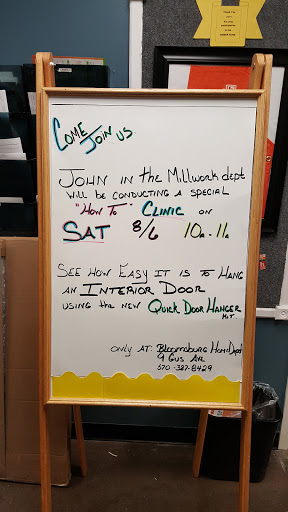 COME JOIN US.
JOHN IN the MILLWORK dept
WILL BE CONDUCTING A SPECIAL
"HOW TO" CLINIC ON
SAT 8/6 10a-11a
SEE HOW EASY IT IS TO HANG
AN INTERIOR DOOR
USING the NEW QUICK DOOR HANGER
KIT.
ONLY AT: Bloomsburg Home Depot
9 GUS AVE
570-387-8429
Thank You